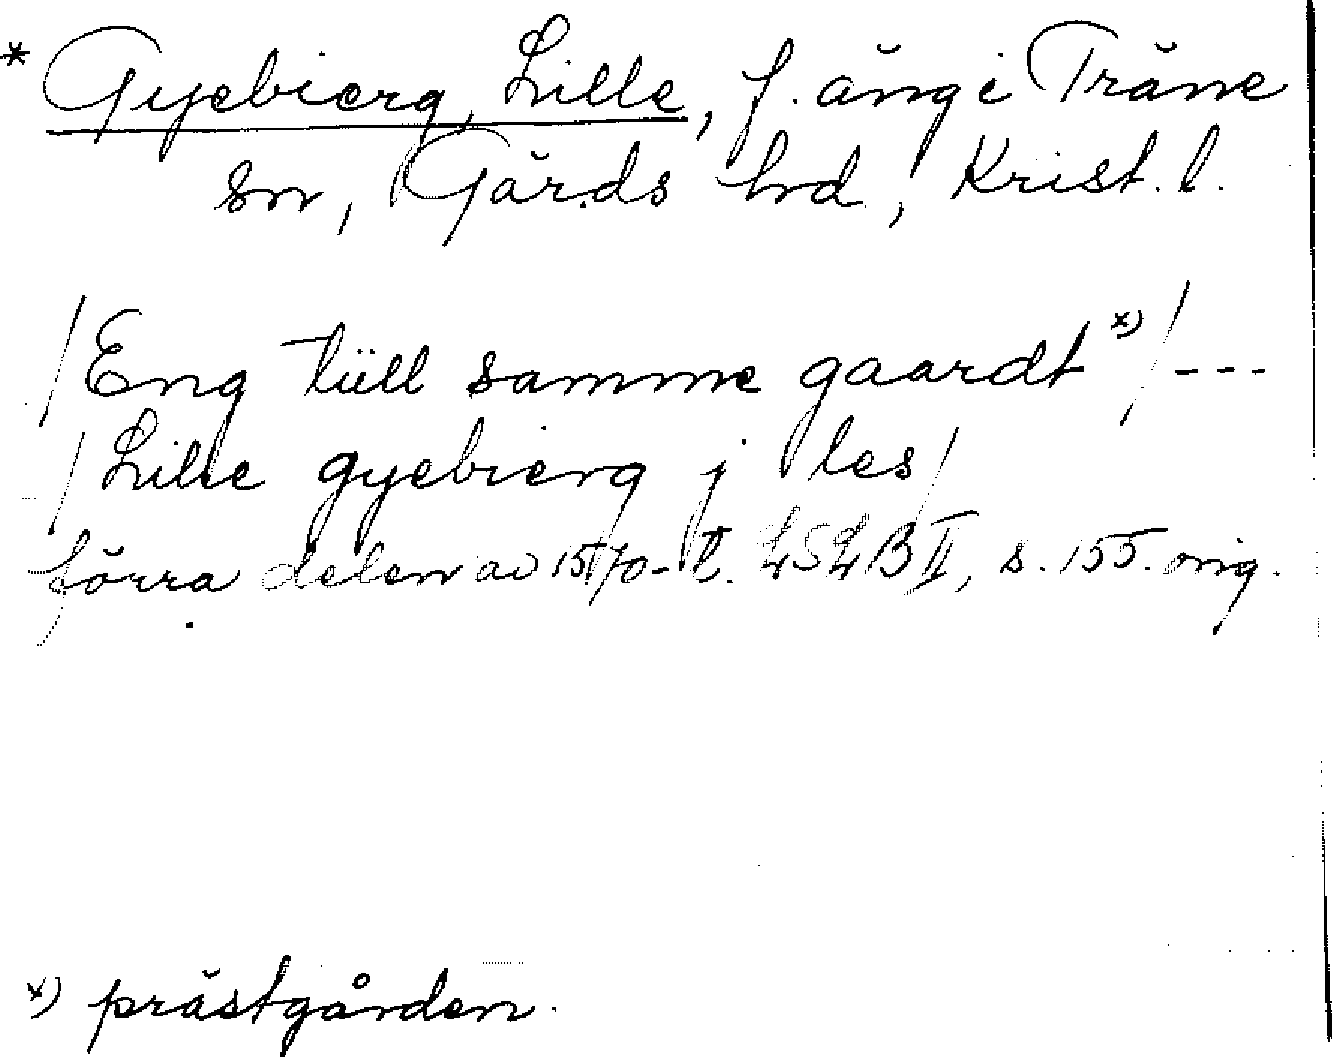 * Gyebierg, Lille, f. äng i Träne
sn, Gärds hd, Krist. l.
/Eng tüll samme gaardt x)/---
/Lille gyebierg j les/
förra delen av 1570-t. LSLB II, s. 155. orig.
x) prästgården.